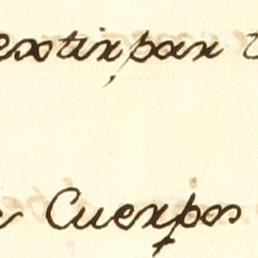 extirpar
Cuerpos